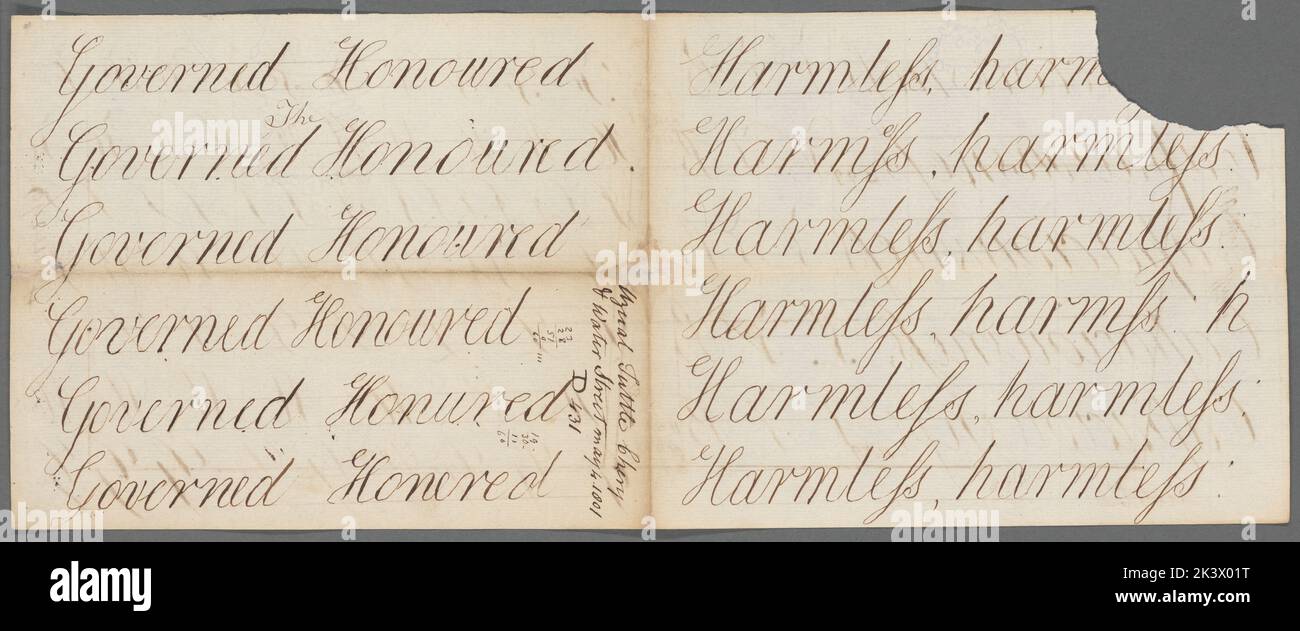 Governed Honoured
The
Governed Honoured .
Governed Honoured
Governed Honoured
Governed Honured
Governed Honered
23
28
57
60
111
19
30
11
60
Uzual Tuttle Chery
& Water Street may 4 1801
D 431
Harmleſs, harm
Harmſs, harmleſs:
Harmleſs, harmleſs:
Harmleſs, harmſs: h
Harmleſs, harmleſs:
Harmleſs, harmleſs:
alamy
Image ID: 2K3X01T
www.alamy.com